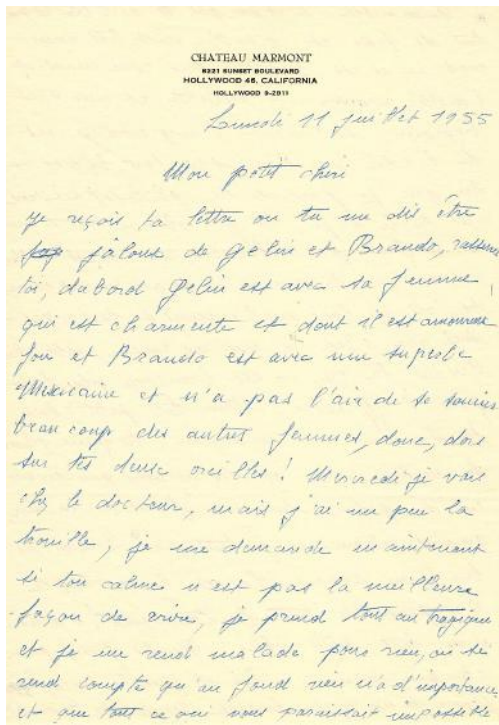 CHATEAU MARMONT
8221 SUNSET BOULEVARD
HOLLYWOOD 46, CALIFORNIA
HOLLYWOOD 9-2911
Lundi 11 juillet 1955
Mon petit cheri
Je reçois ta lettre ou tu me dis être
jâloux de Gelin et Brando, rassure
toi, dabord Gelin est avec sa femme
qui est charmente et dont il est amoureux
fou et Brando est avec une superbe
Mexicaine et n'a pas l'air de se soucier
beaucoup des autres femmes, donc, dors
sur tes deux oreilles ! Mercredi je vais
chez le docteur, mais j'ai un peu la
trouille, je me demande maintenant
si ton calme n'est pas la meilleure
façon de vivre, je prend tout au tragique
et je me rend malade pour rien, on se
rend compte qu'au fond rien n'a d'importance
et que tout ce qui nous paraissait impossible